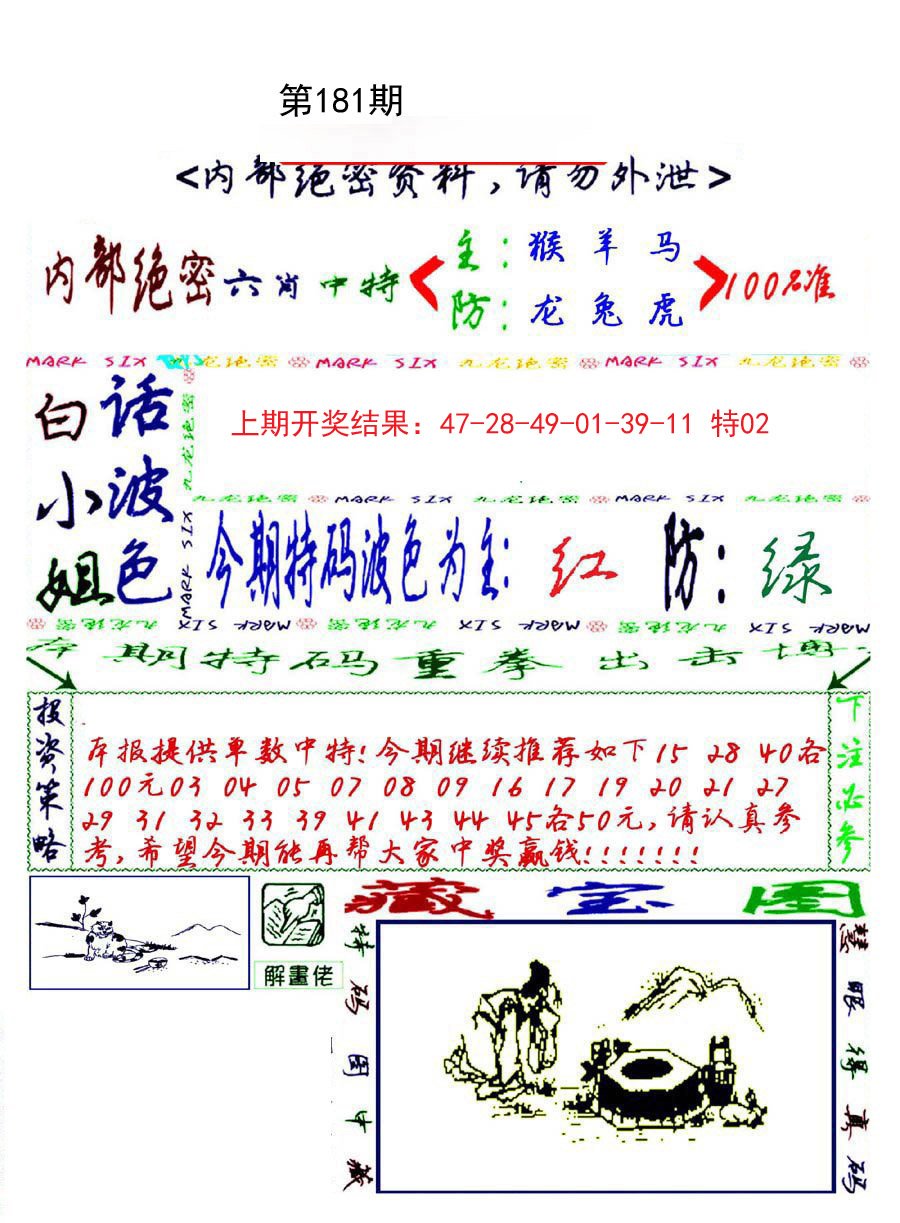 第181期
<内部绝密资料,请勿外泄>
内部绝密六肖中特
主:猴 羊 马
防:龙 兔 虎
100%准
MARK SIX 九龙绝密 MARK SIX 九龙绝密 MARK SIX 九龙绝密
白话
小波
姐色
九龙绝密
MARK SIX
上期开奖结果：47-28-49-01-39-11 特02
九龙绝密 MARK SIX 九龙绝密 MARK SIX 九龙绝密
今期特码波色为主: 红 防: 绿
九龙绝密 MARK SIX 九龙绝密 MARK SIX 九龙绝密 MARK SIX
本期特码重拳出击博
投资策略
本报提供单数中特!今期继续推荐如下15 28 40各
100元03 04 05 07 08 09 16 17 19 20 21 27
29 31 32 33 39 41 43 44 45各50元,请认真参
考,希望今期能再帮大家中奖赢钱!!!!!!!
下注必参
解畫佬
藏宝图
特码图中藏
慧眼得真码